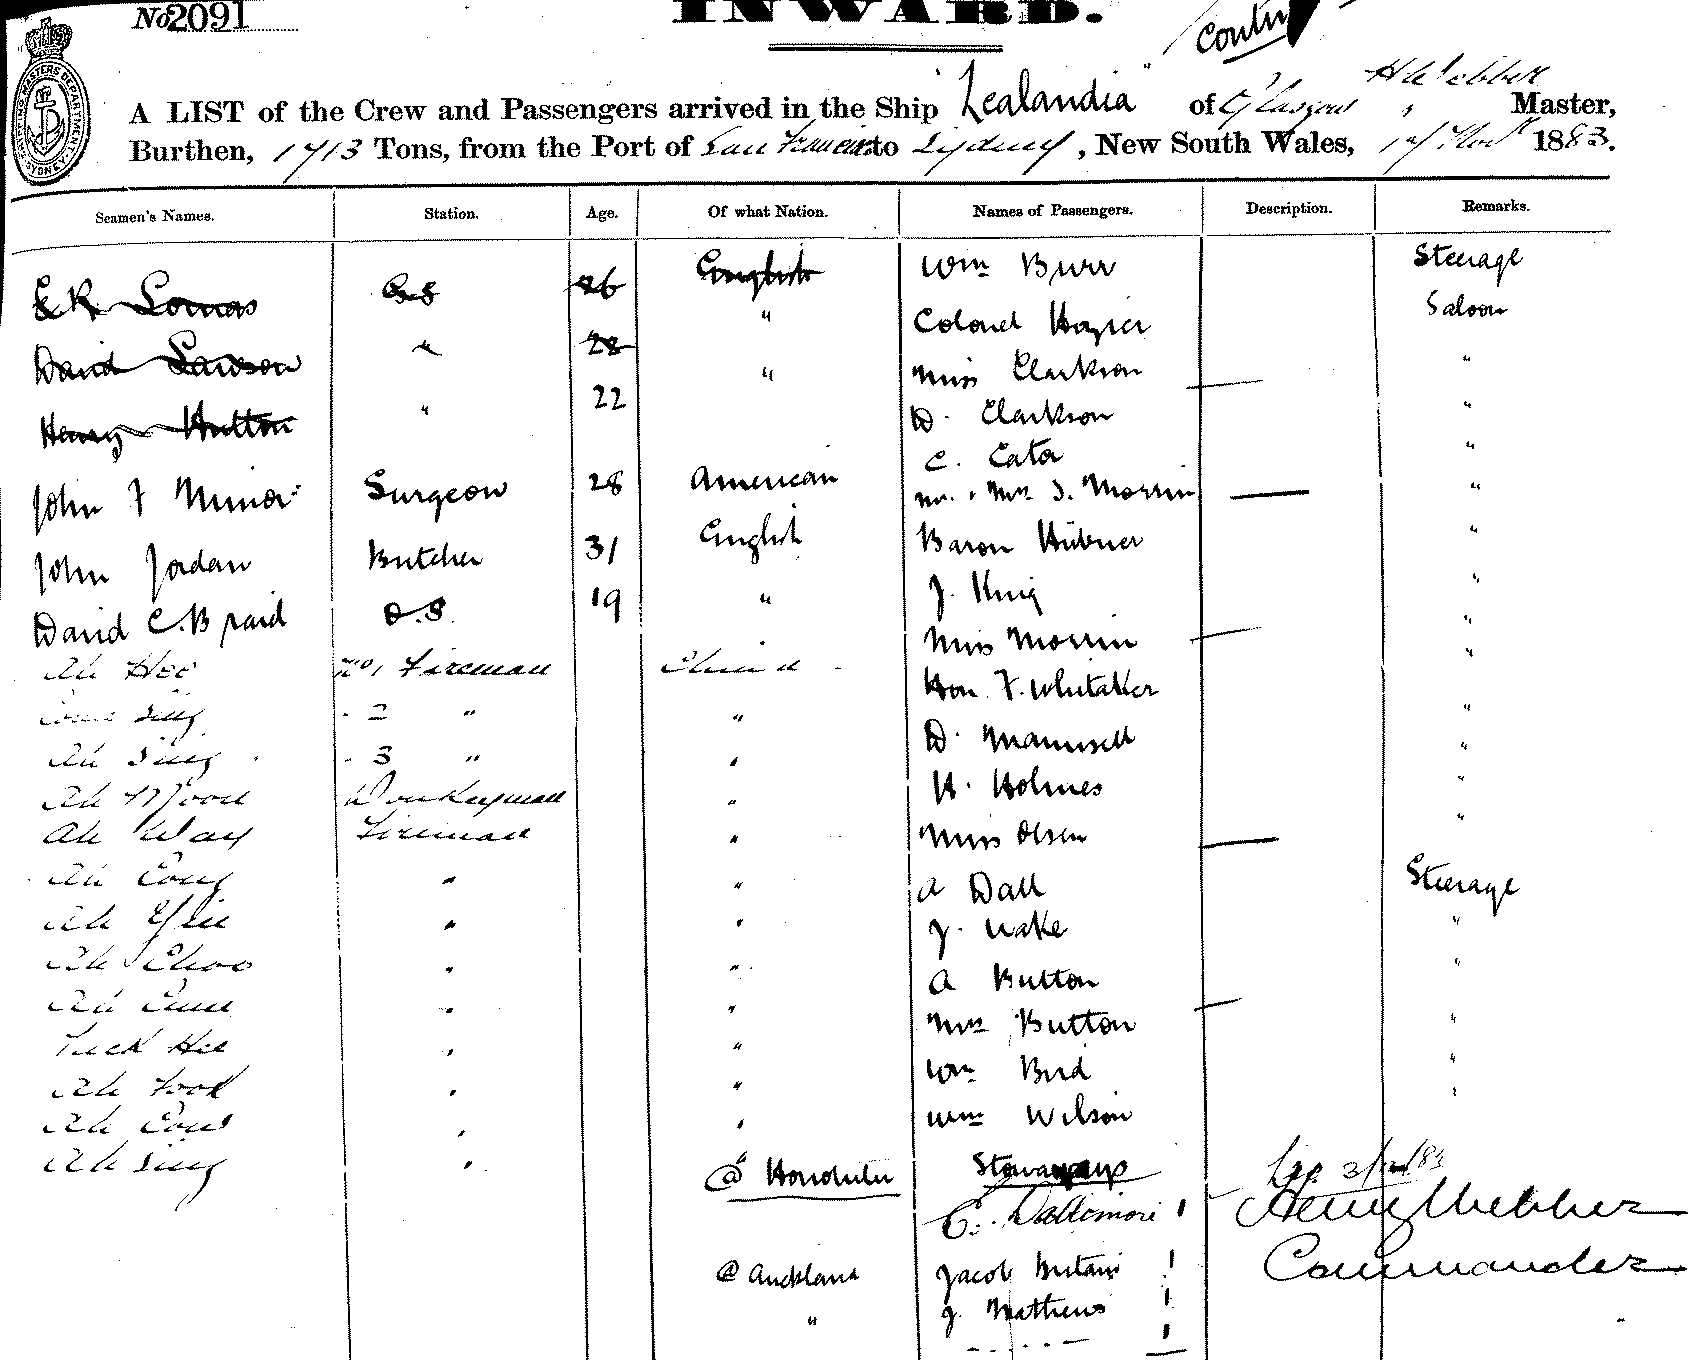 No 2091
INWARD.
Contd
A LIST of the Crew and Passengers arrived in the Ship "Zealandia" of Glasgow, H Webber Master,
Burthen, 1713 Tons, from the Port of San Francisco to Sydney, New South Wales, Novr 1883.
Seamen's Names. Station. Age. Of what Nation. Names of Passengers. Description. Remarks.
Wm Burr Steerage
E R Lomas O S 26 English
Colonel Hozier Saloon
David Lawson " 28 "
Miss Clarkson — "
Henry Hutton " 22 "
D. Clarkson "
C. Cato "
John F Minor Surgeon 28 American Mr. & Mrs J. Morrin — "
John Jordan Butcher 31 English Baron Hübner "
David C. Braid O.S. 19 " J. King "
Miss Morrin — "
Ah Hee No 1 Fireman China Hon. F. Whitaker "
Sing - 2 " " D. Maunsell "
Ah Sing - 3 " " H. Holmes "
Ah Moon Donkeyman "
Ah Way Fireman " Miss Olsen — "
Ah " " A Dall Steerage
Ah " " J. Wake "
Ah Choo " " A Button "
Ah " " Mrs Button — "
Tuck Hee " " Wm Bird "
Ah Fook " " Wm Wilson "
Ah " "
Ah Sing " "
@ Honolulu Stowaways
C. Baltimore 1 Henry Webber
@ Auckland Jacob Britain 1 Commander
" J. Mathews 1
1